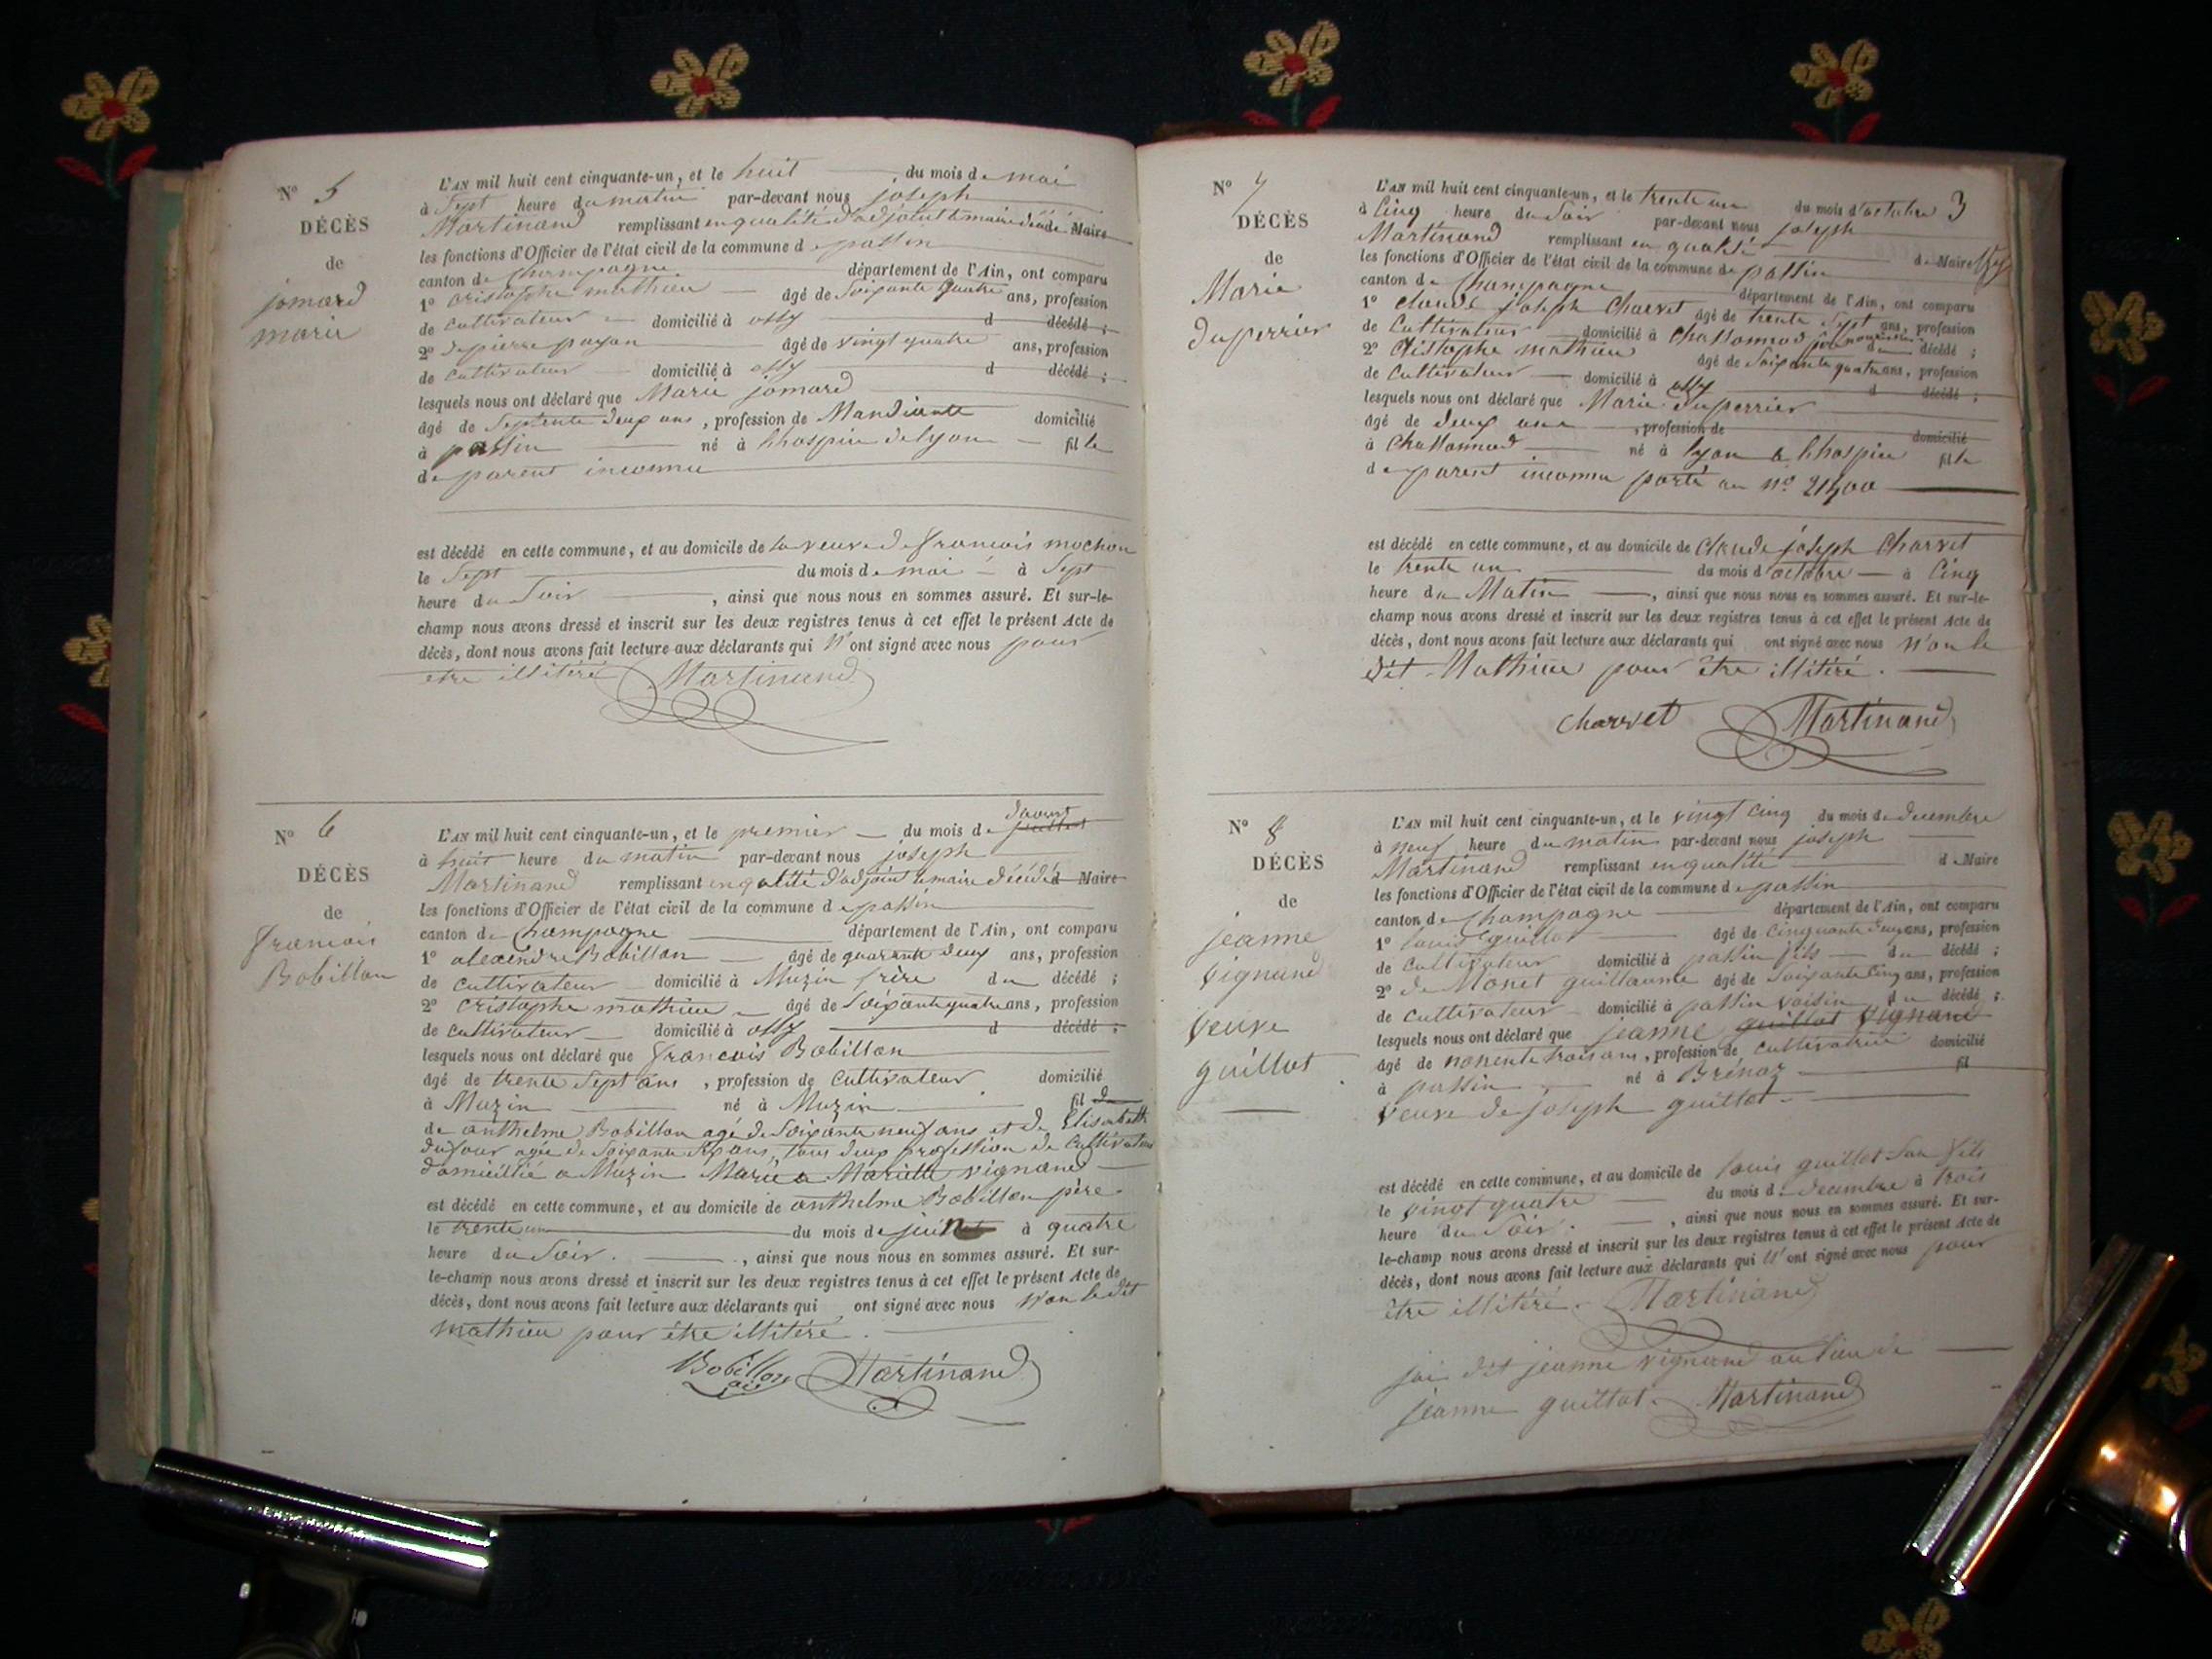 N° 5
DÉCÈS
de
jomard
marie
L'AN mil huit cent cinquante-un, et le huit du mois de mai
à Sept heure du matin par-devant nous joseph
Martinand remplissant en qualité d'adjoint le maire décédé Maire
les fonctions d'Officier de l'état civil de la commune de passin
canton de Champagne département de l'Ain, ont comparu
1° cristophe mathieu âgé de Soixante quatre ans, profession
de cultivateur domicilié à ossy d décédé ;
2° de pierre payan âgé de vingt quatre ans, profession
de cultivateur domicilié à ossy d décédé ;
lesquels nous ont déclaré que Marie jomard
âgé de Septente deux ans, profession de Mandiante domicilié
à passin né à lhospice de lyon fille
de parent inconnu
est décédé en cette commune, et au domicile de la veuve de francois mochon
le Sept du mois de mai à Sept
heure du Soir, ainsi que nous nous en sommes assuré. Et sur-le-
champ nous avons dressé et inscrit sur les deux registres tenus à cet effet le présent Acte de
décès, dont nous avons fait lecture aux déclarants qui n' ont signé avec nous pour
etre illitéré Martinand
N° 6
DÉCÈS
de
francois
Bobillon
L'AN mil huit cent cinquante-un, et le premier du mois de juillet d'aoust
à huit heure du matin par-devant nous joseph
Martinand remplissant en qalité d'adjoint le maire décédé d Maire
les fonctions d'Officier de l'état civil de la commune de passin
canton de Champagne département de l'Ain, ont comparu
1° alexindre Bobillon âgé de quarante deux ans, profession
de cultivateur domicilié à Muzin frère du décédé ;
2° cristophe mathieu âgé de Soixante quatre ans, profession
de cultivateur domicilié à ossy d décédé ;
lesquels nous ont déclaré que francois Bobillon
âgé de trente Sept ans, profession de Cultivateur domicilié
à Muzin né à Muzin fil d
de anthelme Bobillon agé de Soixante neuf ans et de Elisabeth
dufour agée de Soixante ans, tous deux profession de Cultivateur
domicilié a Muzin Marié a Mariette vignand
est décédé en cette commune, et au domicile de anthelme Bobillon père
le trente un du mois de à quatre
heure du Soir., ainsi que nous nous en sommes assuré. Et sur-
le-champ nous avons dressé et inscrit sur les deux registres tenus à cet effet le présent Acte de
décès, dont nous avons fait lecture aux déclarants qui ont signé avec nous n'on le dit
mathieu pour être illitéré.
Bobillon Martinand
3
N° 7
DÉCÈS
de
Marie
duperrier
L'AN mil huit cent cinquante-un, et le trente un du mois d'octobre
à Cinq heure du Soir par-devant nous joseph
Martinand remplissant en qualité de Maire
les fonctions d'Officier de l'état civil de la commune de passin
canton de Champagne département de l'Ain, ont comparu
1° claude joseph Charvet âgé de trente Sept ans, profession
de Cultivateur domicilié à Chassonnod père nourissier du décédé ;
2° Cristophe mathieu âgé de Soixante quatre ans, profession
de Cultivateur domicilié à ossy d décédé ;
lesquels nous ont déclaré que Marie duperrier
âgé de deux ans, profession de domicilié
à Chassonnod né à lyon a lhospice fille
de parent inconnu porté au n°. 21400
est décédé en cette commune, et au domicile de Claude joseph Charvet
le trente un du mois d'octobre à Cinq
heure du Matin, ainsi que nous nous en sommes assuré. Et sur-le-
champ nous avons dressé et inscrit sur les deux registres tenus à cet effet le présent Acte de
décès, dont nous avons fait lecture aux déclarants qui ont signé avec nous n'on le
dit Mathieu pour être illitéré.
Charvet Martinand
N° 8
DÉCÈS
de
jeanne
vignand
veuve
guillot
L'AN mil huit cent cinquante-un, et le vingt cinq du mois de decembre
à neuf heure du matin par-devant nous joseph
Martinand remplissant en qualité de Maire
les fonctions d'Officier de l'état civil de la commune de passin
canton de Champagne département de l'Ain, ont comparu
1° louis guillot âgé de Cinquante deux ans, profession
de cultivateur domicilié à passin fils du décédé ;
2° de Monet guillaume âgé de Soixante Cinq ans, profession
de cultivateur domicilié à passin voisin du décédé ;
lesquels nous ont déclaré que jeanne guillot vignand
âgé de nonente trois ans, profession de cultivatrice domicilié
à passin né à Brénaz fil
veuve de joseph guillot
est décédé en cette commune, et au domicile de louis guillot Son fils
le vingt quatre du mois de decembre à trois
heure du Soir., ainsi que nous nous en sommes assuré. Et sur-
le-champ nous avons dressé et inscrit sur les deux registres tenus à cet effet le présent Acte de
décès, dont nous avons fait lecture aux déclarants qui n' ont signé avec nous pour
être illitéré. Martinand
jai dit jeanne vignand au lieu de
jeanne guillot. Martinand